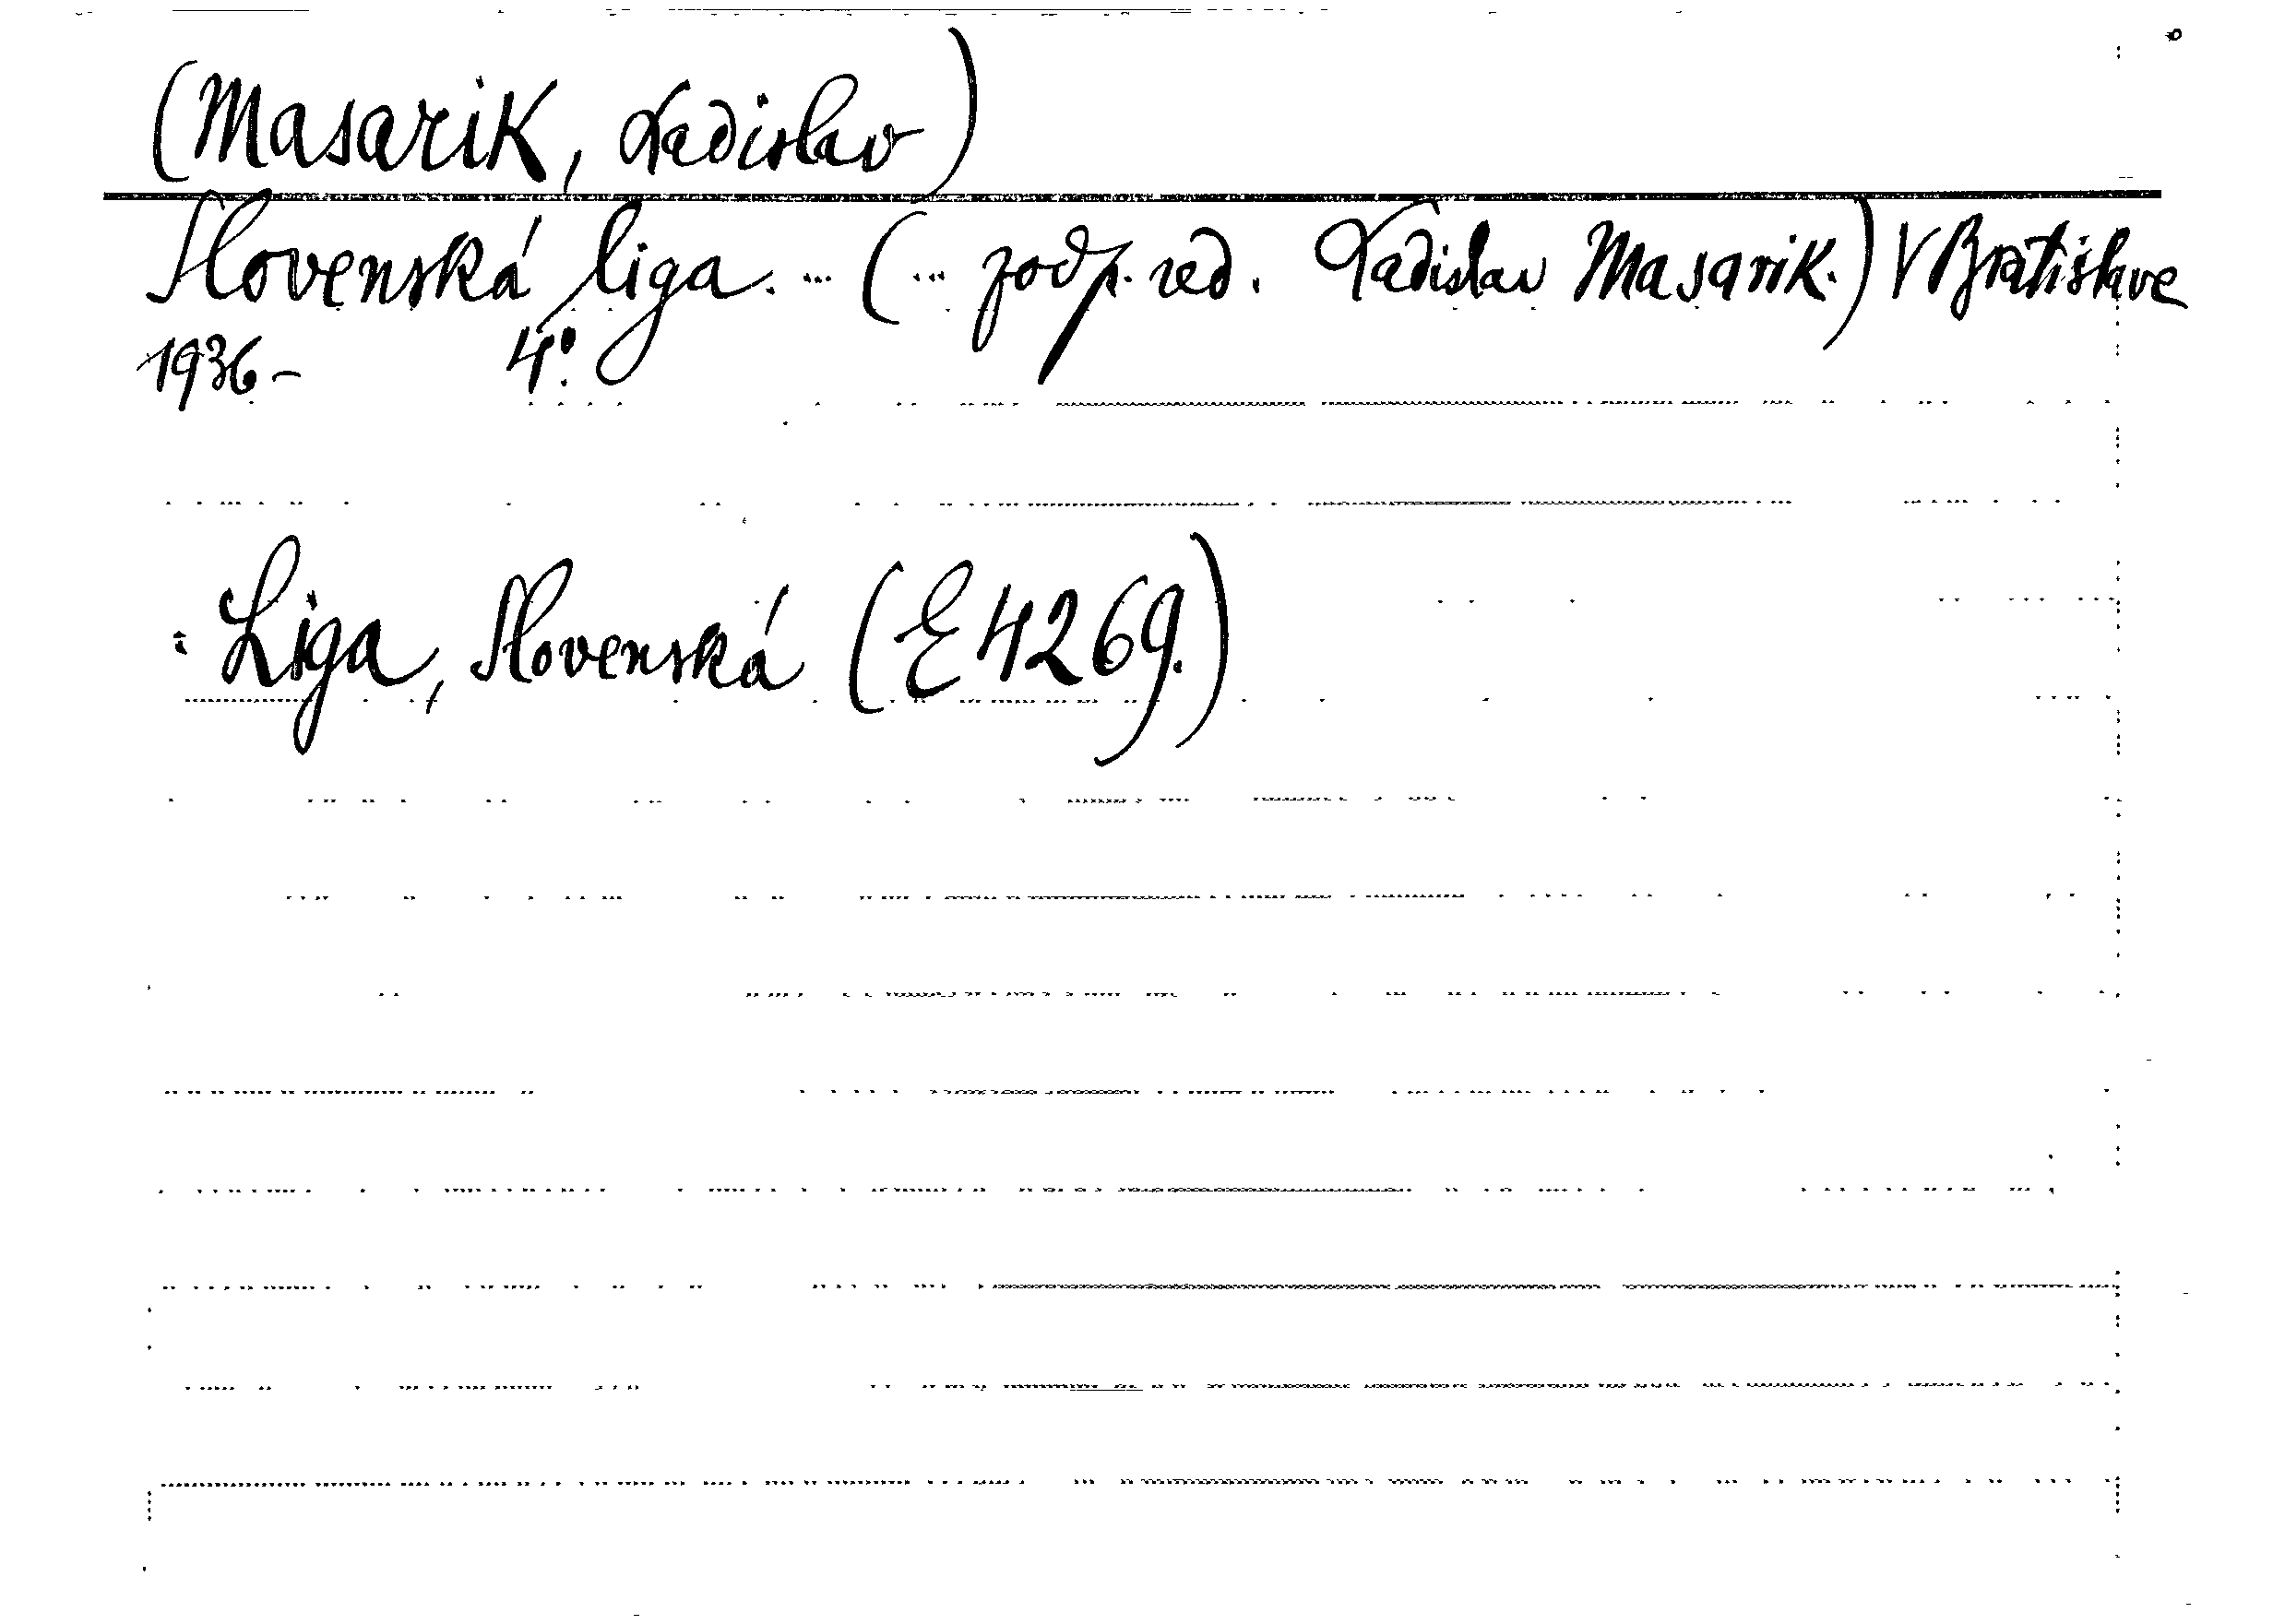 (Masarik, Ladislav)
Slovenská liga. ... (... zodp. red. Ladislav Masarik.) V Bratislave
1936- 4°.
: Liga, Slovenská (E 4269.)